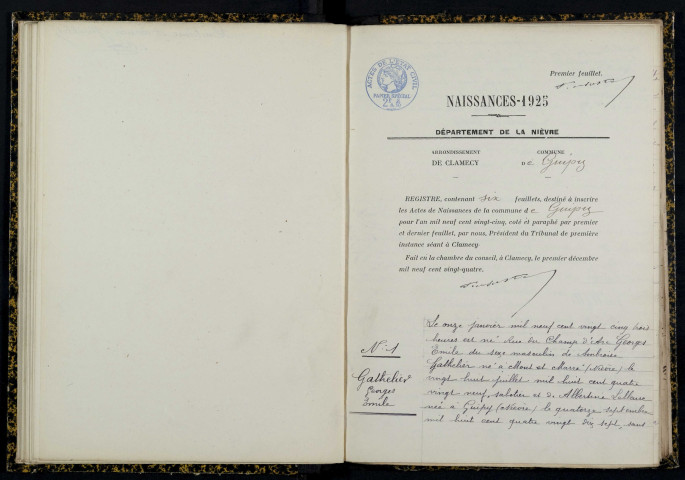 Premier feuillet.
ACTES DE L'ÉTAT CIVIL
PAPIER SPÉCIAL
NAISSANCES-1925
DÉPARTEMENT DE LA NIÈVRE
ARRONDISSEMENT
DE CLAMECY
COMMUNE
DE Guipy
REGISTRE, contenant six feuillets, destiné à inscrire
les Actes de Naissances de la commune de Guipy
pour l'an mil neuf cent vingt-cinq, coté et paraphé par premier
et dernier feuillet, par nous, Président du Tribunal de première
instance séant à Clamecy.
Fait en la chambre du conseil, à Clamecy, le premier décembre
mil neuf cent vingt-quatre.
N° 1
Gathelier
Georges
Emile
Le onze janvier mil neuf cent vingt cinq
heures est né Rue du Champ d'Arc Georges
Emile du sexe masculin de Ambroise
Gathelier né à Mont et Marré (Nièvre) le
vingt huit juillet mil huit cent quatre
vingt neuf, sabotier et de Albertine
née à Guipy (Nièvre) le quatorze septembre
mil huit cent quatre vingt dix sept, sans